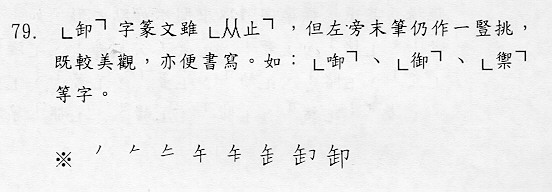 79. 「卸」字篆文雖「从止」,但左旁末筆仍作一豎挑,
既較美觀,亦便書寫。如:「啣」、「御」、「禦」
等字。
※ 卸